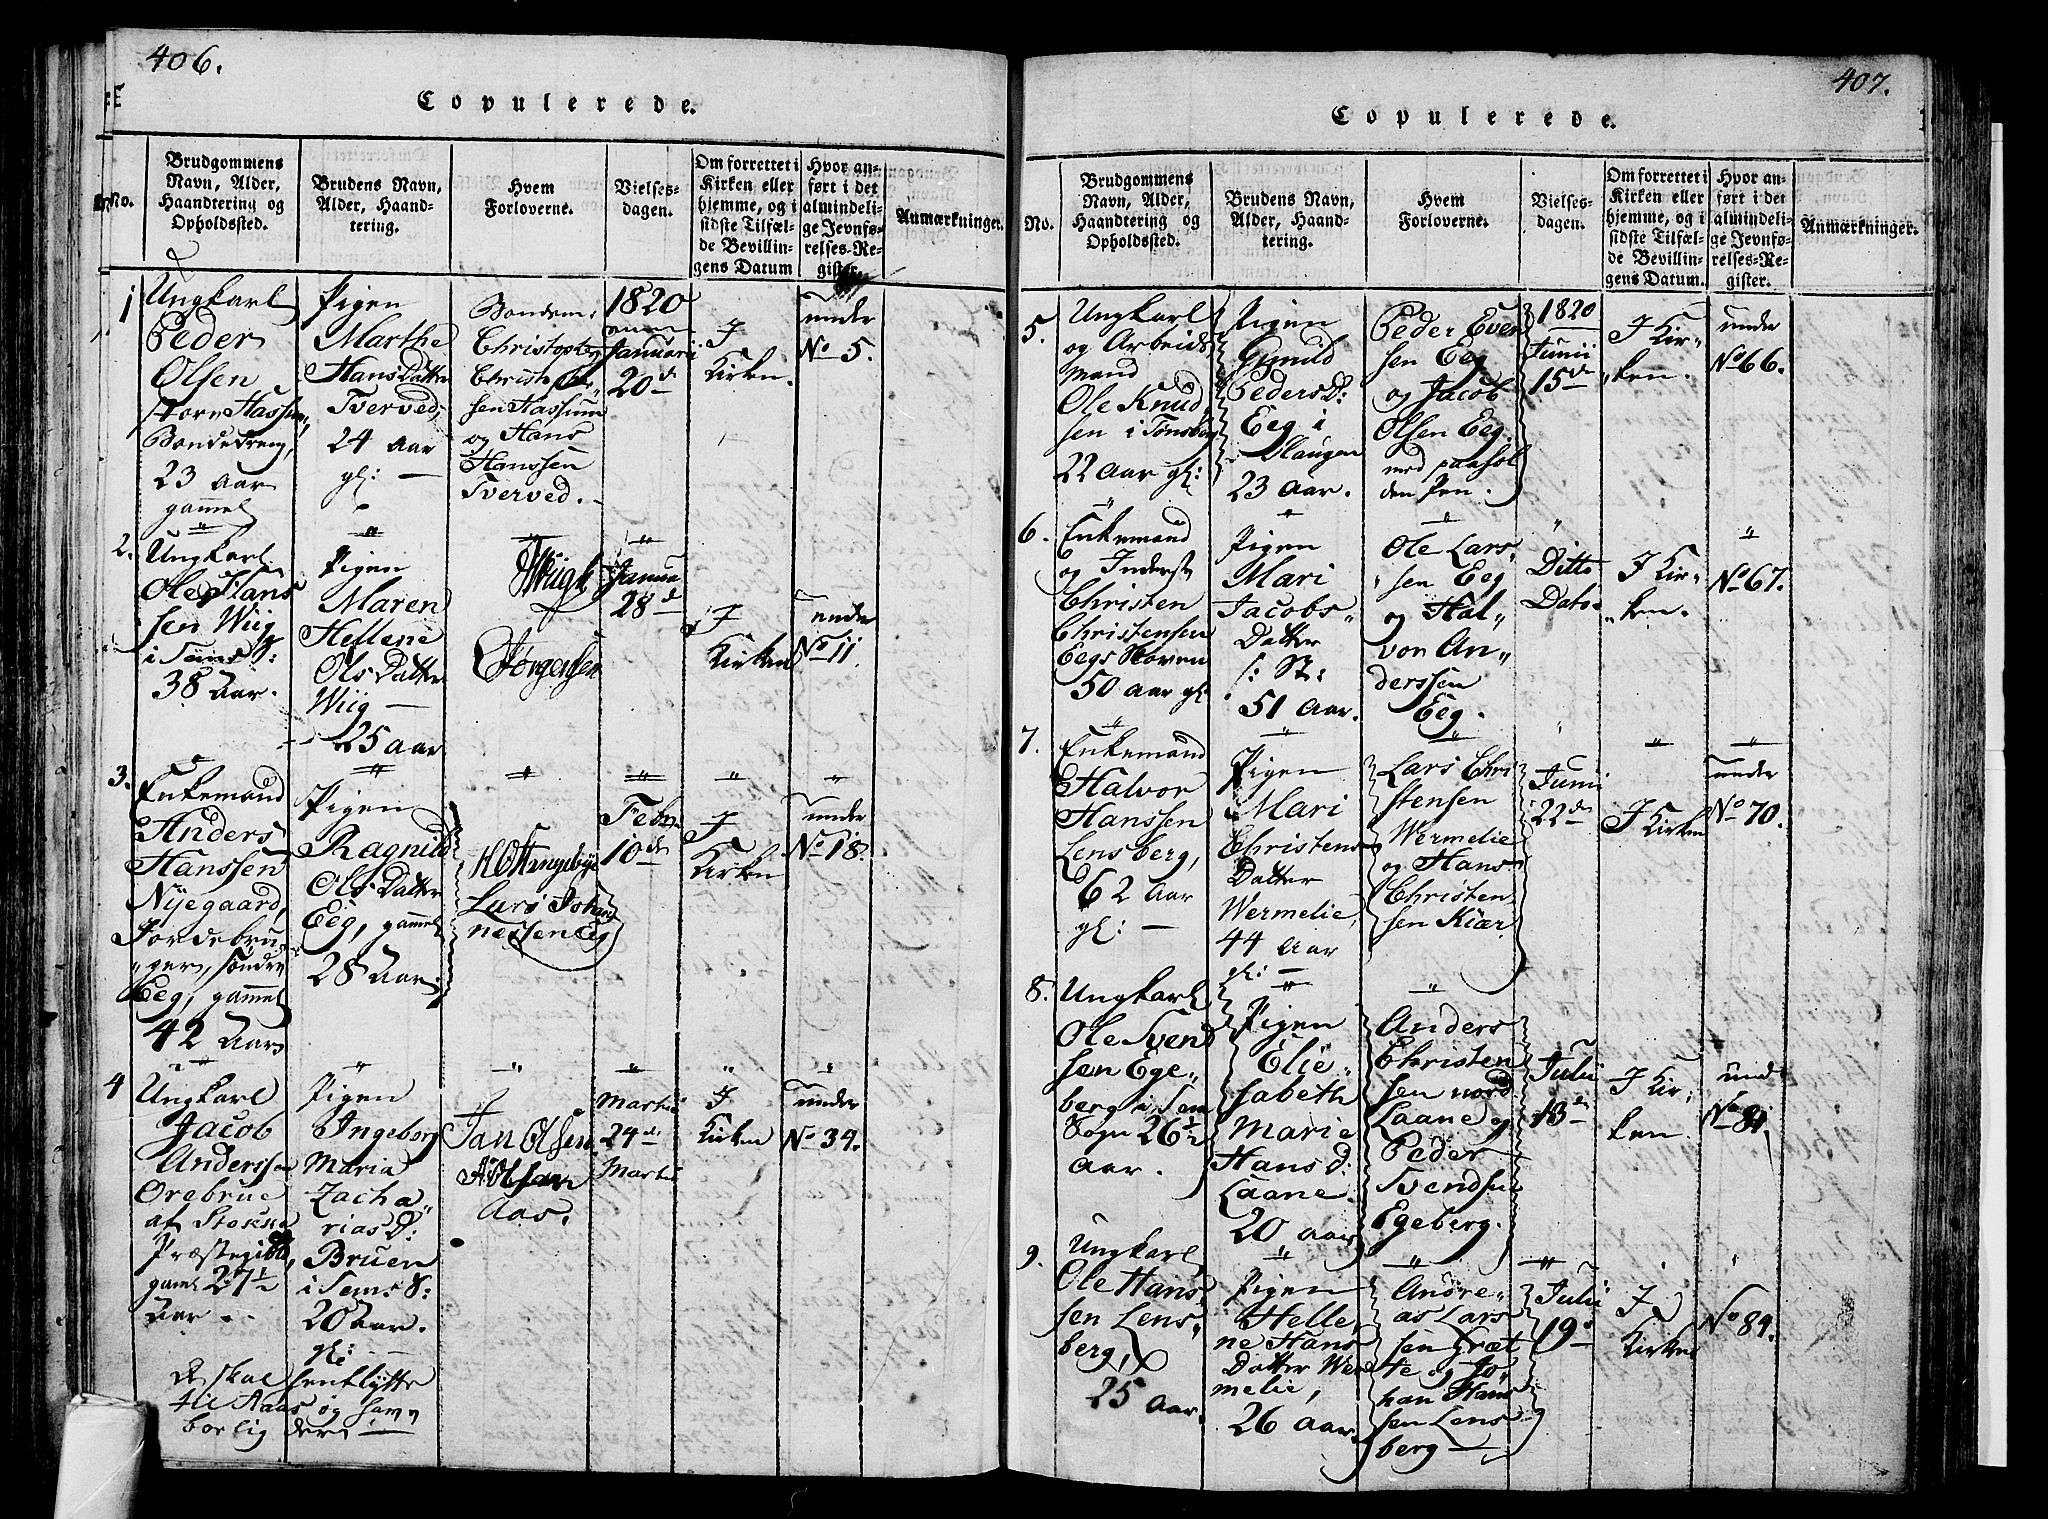 406.
Copulerede.
No.
Brudgommens
Navn, Alder,
Haandtering og
Opholdssted.
Brudens Navn,
Alder, Haand-
tering.
Hvem
Forloverne.
Vielses-
dagen.
Om forrettet i
Kirken eller
hjemme, og i
sidste Tilfæl-
de Bevillin-
gens Datum
Hvor an-
ført i det
almindeli-
ge Jevnfø-
relses-Re-
gister.
Anmærkninger.
1
Ungkarl
Peder
Olsen
Bondedreng,
23 Aar
gammel
Pigen
Marthe
Hans Datter
Tverved,
24 Aar
gl: —
Bondem:
Christopher
Christoffer
sen Hassum
og Hans
Hanssen
Tverved. -
1820
Januarii
20d
I
Kirken.
under
No 5.
2.
Ungkarl
Ole Hans
sen Wiig
i Sems S:
38 Aar.
Pigen
Maren
Hellene
Ols Datter
Wiig —
25 Aar
Jørgensen
Janua
28d
I
Kirken
under
No 11
3.
Enkemand
Anders
Hanssen
Nyegaard,
Jordebru
ger, søndre
Eeg, gammel
42 Aar
Pigen
Ragnild
Ols Datter
Eeg, gammel
28 Aar
Lars Johan
nessen Eg
Febr
10de
I
Kirken
under
No 18.
4
Ungkarl
Jacob
Anderssen
Orebrue
af Stokke
Præstegield,
gaml 27½
Aar - -
Pigen
Ingeborg
Maria
Zacha„
rias D:
Bruen
i Sem: S:
20 Aar.
gl: —
Jan Olsen
A Olsen
Aas.
Martii
24de
Martii
I
Kirken
under
No 34.
407.
Copulerede.
No.
Brudgommens
Navn, Alder,
Haandtering og
Opholdssted.
Brudens Navn,
Alder, Haand-
tering.
Hvem
Forloverne.
Vielses-
dagen.
Om forrettet i
Kirken eller
hjemme, og i
sidste Tilfæl-
de Bevillin-
gens Datum.
Hvor an-
ført i det
almindeli-
ge Jevnfø-
relses-Re-
gister.
Anmærkninger.
5.
Ungkarl
og Arbeids
mand
Ole Knud
sen i Tønsberg
22 Aar gl:
Pigen
Gunild
Peders D:
Eeg i
Haugen
23 Aar.
Peder Even
sen Eeg
og Jacob
Olsen Eeg.
med paahol
den Pen.
1820
Junii
15de
I Kir„
„ken.
under
No 66.
6.
Enkemand
og Inderst
Christen
Christensen
Eegs Skoven
50 Aar gl:
Pigen
Mari
Jacobs„
Datter
51 Aar.
Ole Lars„
„sen Eeg
og Hal„
vor An„
derssen
Eeg.
Ditto
Dato.
I Kir„
„ken.
No 67.
7.
Enkemand
Halvor
Hanssen
Lensberg,
62 Aar
gl: —
Pigen
Mari
Christens
Datter
Wermelie,
44 Aar
gl: —
Lars Chri
stensen
Wermelie
og Hans
Christen
sen Kiær
Junii
22de
I Kirken
under
No 70.
8.
Ungkarl
Ole Svend
sen Ege„
berg i Sem
Sogn 26½
Aar.
Pigen
Elie„
sabeth
Marie
Hans D:
Laane.
20 Aar
Anders
Christen
sen nord
Laane og
Peder
Svendsen
Egeberg.
Julii
13de
I Kir„
ken.
und
No 81
9.
Ungkarl
Ole Hans
sen Lens„
berg,
25 Aar.
Pigen
Helle„
ne Hans
Datter Wer
melie,
26 Aar.
Andre„
as Lars
sen Græt
te og Jo„
han Hans
sen Lens
berg —
Julii
19de
I
Kirken
No 84.